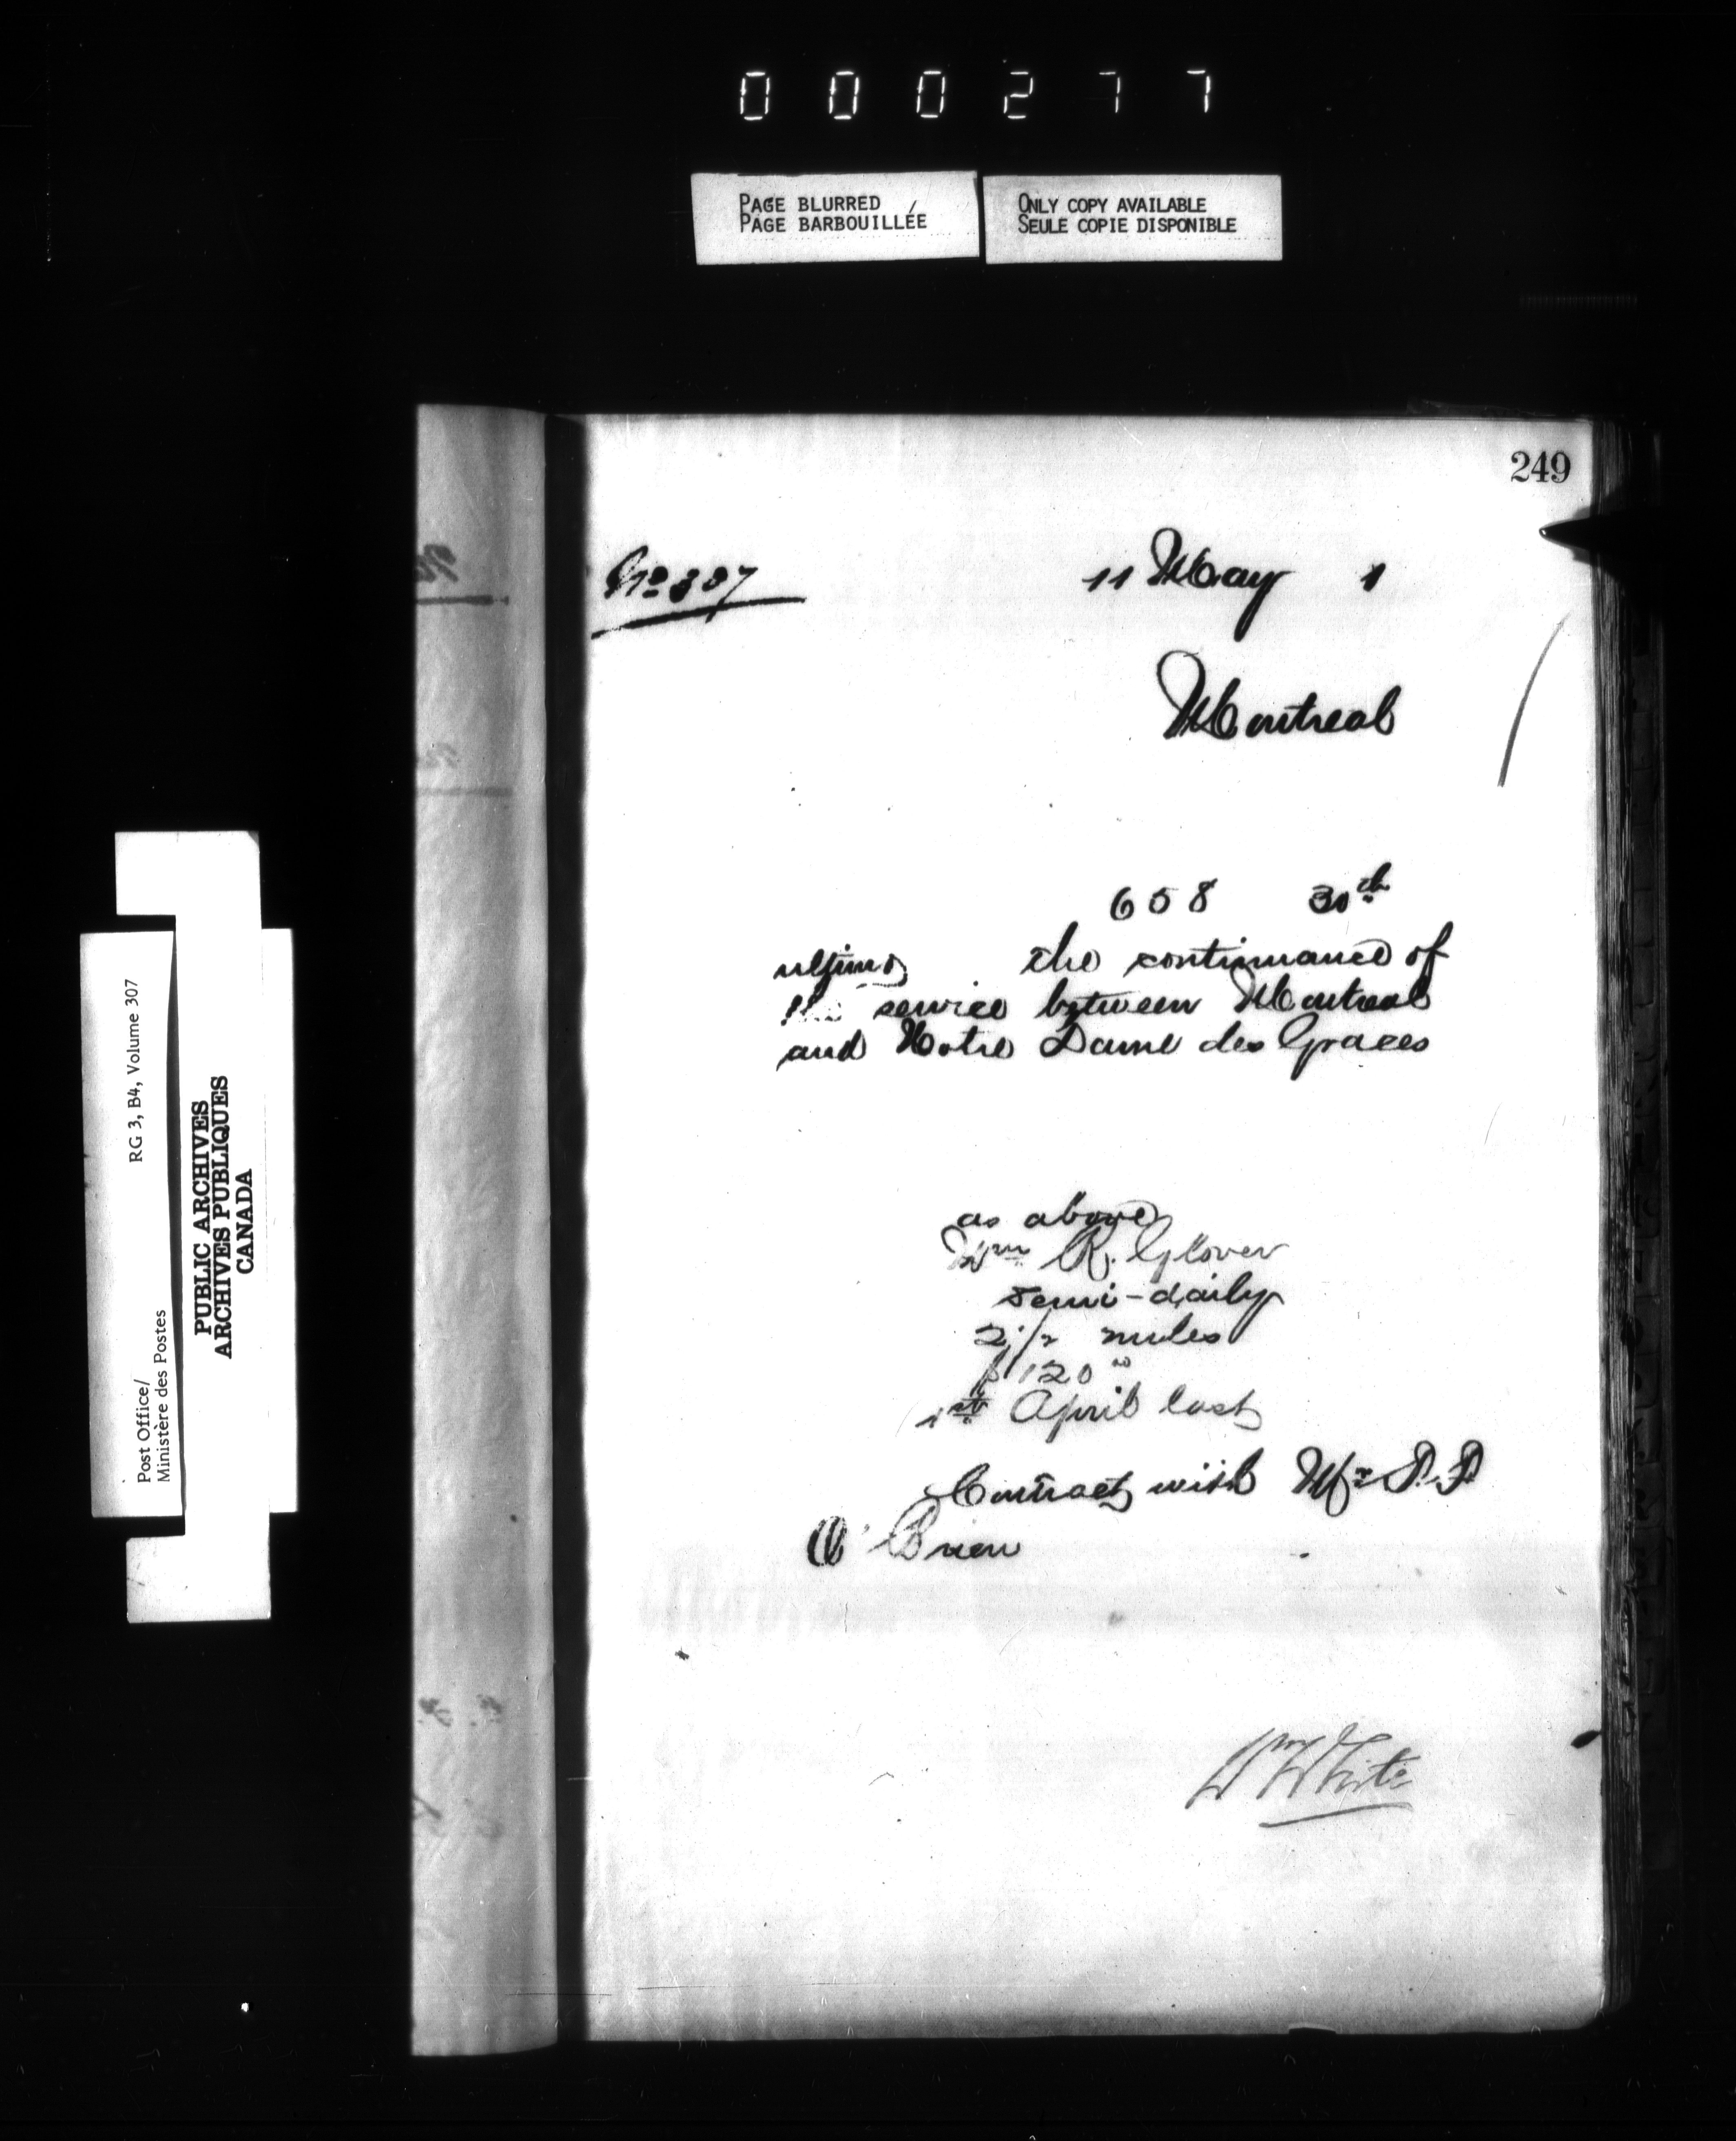 000277
PAGE BLURRED
PAGE BARBOUILLÉE
ONLY COPY AVAILABLE
SEULE COPIE DISPONIBLE
249
No 307
11 May 1
Montreal
658 30th
ultimo the continuance of
the service between Montreal
and Notre Dame des Graces
as above
Wm R. Glover
semi-daily
2 1/2 miles
$120 00
1st April last
Contract with Mr P. P.
O'Brien
Wm White
Post Office/
Ministère des Postes
RG 3, B4, Volume 307
PUBLIC ARCHIVES
ARCHIVES PUBLIQUES
CANADA